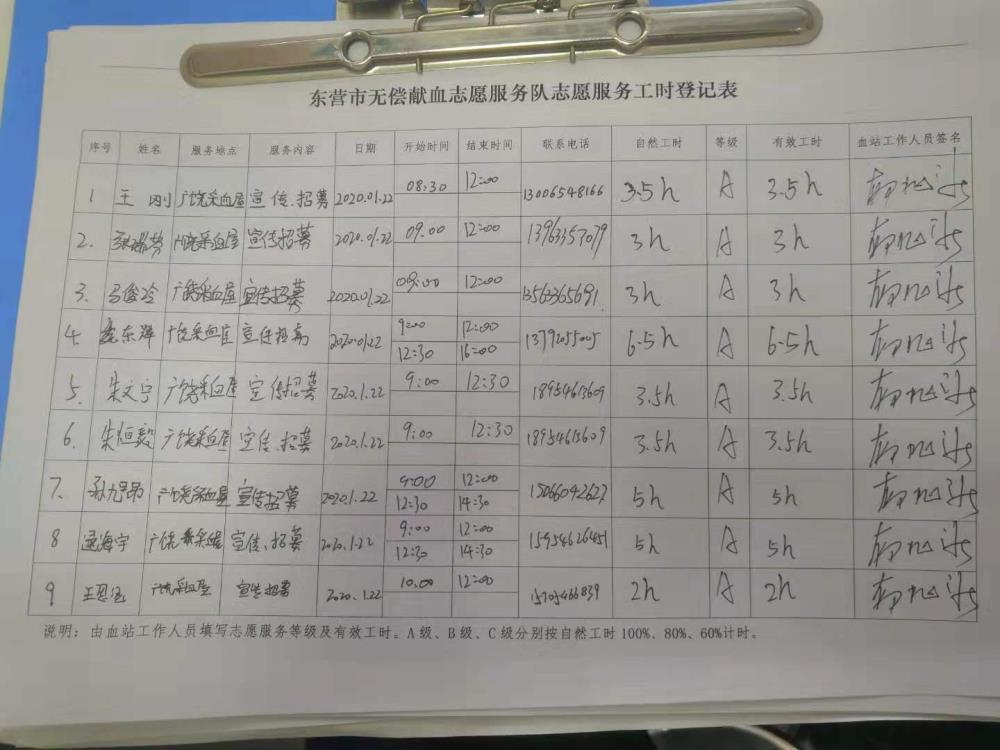 东营市无偿献血志愿服务队志愿服务工时登记表
序号 姓名 服务地点 服务内容 日期 开始时间 结束时间 联系电话 自然工时 等级 有效工时 血站工作人员签名
1 王刚 广饶采血屋 宣传、招募 2020.01.22 08:30 12:00 13006548166 3.5h A 3.5h
2. 广饶采血屋 宣传招募 2020.01.22 09.00 12:00 13963357079 3h A 3h
3、 马俊玲 广饶采血屋 宣传招募 2020.01.22 09:00 12:00 13563365691 3h A 3h
4. 广饶采血屋 宣传招募 2020.01.22 9:00 12:00 6.5h A 6.5h
12:30 16:00
5. 朱文宁 广饶采血屋 宣传招募 2020.1.22 9:00 12:30 18954613609 3.5h A 3.5h
6. 朱恒毅 广饶采血屋 宣传、招募 2020.1.22 9:00 12:30 18954613609 3.5h A 3.5h
7、 广饶采血屋 宣传招募 2020.1.22 9:00 12:00 5h A 5h
12:30 14:30
8 海宇 广饶 宣传、招募 2020.1.22 9:00 12:00 15954626451 5h A 5h
12:30 14:30
9 广饶采血屋 宣传招募 2020.1.22 10.00 12:00 2h A 2h
说明：由血站工作人员填写志愿服务等级及有效工时。A级、B级、C级分别按自然工时100%、80%、60%计时。